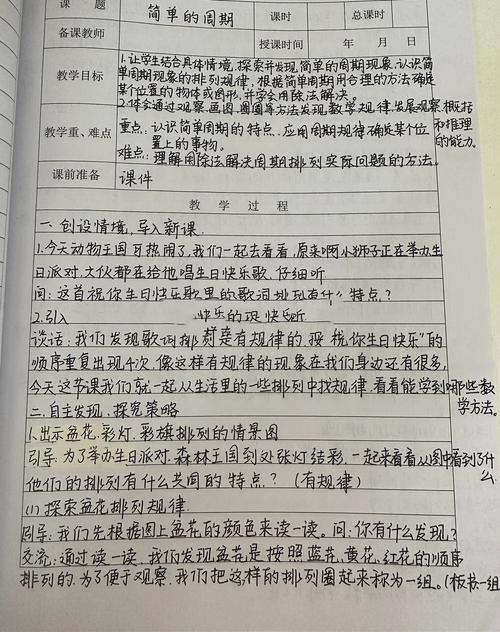 课 题 简单的周期 课时 总课时
备课教师 授课时间 年 月 日
教学目标
1.让学生结合具体情境,探索并发现简单的周期现象,认识简
单周期现象的排列规律,根据简单周期用合理的方法确定
某个位置的物体或图形,并学会用除法解决。
2.体会通过观察、画图、圈圈等方法发现数学规律,发展观察、概括
和推理
的能力。
教学重、难点
重点:认识简单周期的特点,应用周期规律确定某个位
置上的事物。
难点:理解用除法解决周期排列实际问题的方法。
课前准备 课件
教 学 过 程
一、创设情境,导入新课
1.今天动物王国可热闹了,我们一起去看看,原来啊小狮子正在举办生
日派对,大伙都在给他唱生日快乐歌,仔细听
问:这首祝你生日快乐歌里的歌词排列有什么特点?
2.引入
谈话:我们发现歌词排列是有规律的,按“祝你生日快乐”的
顺序重复出现4次,像这样有规律的现象在我们身边还有很多,
今天这节课我们就一起从生活里的一些排列中找规律,看看能学到哪些数
学方法。
二、自主发现,探究策略
1.出示盆花、彩灯、彩旗排列的情景图
引导:为了举办生日派对,森林王国到处张灯结彩,一起来看看从图中看到了什
么
他们的排列有什么共同的特点?(有规律)
(1)探索盆花排列规律
引导:我们先根据图上盆花的颜色来读一读。问:你有什么发现?
交流:通过读一读,我们发现盆花是按照蓝花、黄花、红花的顺序
排列的,为了便于观察,我们把这样的排列圈起来称为一组。(板书:一组